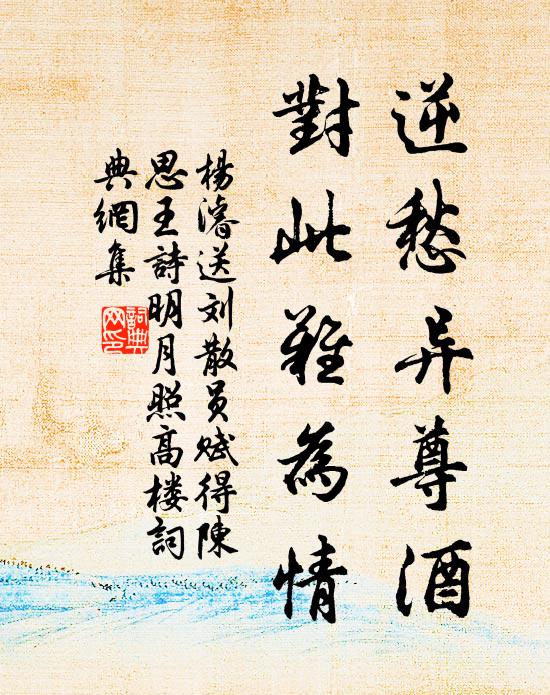 逆愁异尊酒
對此難為情
楊濬送刘散员赋得陳
思王詩明月照高楼詞
典網集
詞典网印